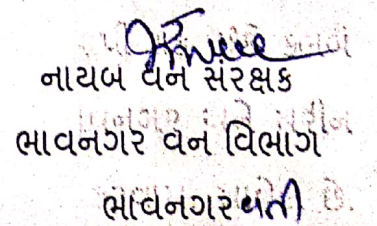 નાયબ વન સંરક્ષક
ભાવનગર વન વિભાગ
ભાવનગર વતી